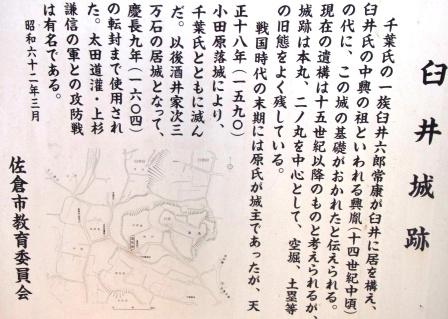 臼井城跡
千葉氏の一族臼井六郎常康が臼井に居を構え、
臼井氏の中興の祖といわれる興胤(十四世紀中頃)
の代に、この城の基礎がおかれたと伝えられる。
現在の遺構は十五世紀以降のものと考えられるが、
城跡は本丸、二ノ丸を中心として、空堀、土塁等
の旧態をよく残している。
戦国時代の末期には原氏が城主であったが、天
正十八年(一五九〇)
小田原落城により、
千葉氏とともに滅ん
だ。以後酒井家次三
万石の居城となって、
慶長九年(一六〇四)
の転封まで使用され
た。太田道灌・上杉
謙信の軍との攻防戦
は有名である。
昭和六十二年三月
佐倉市教育委員会